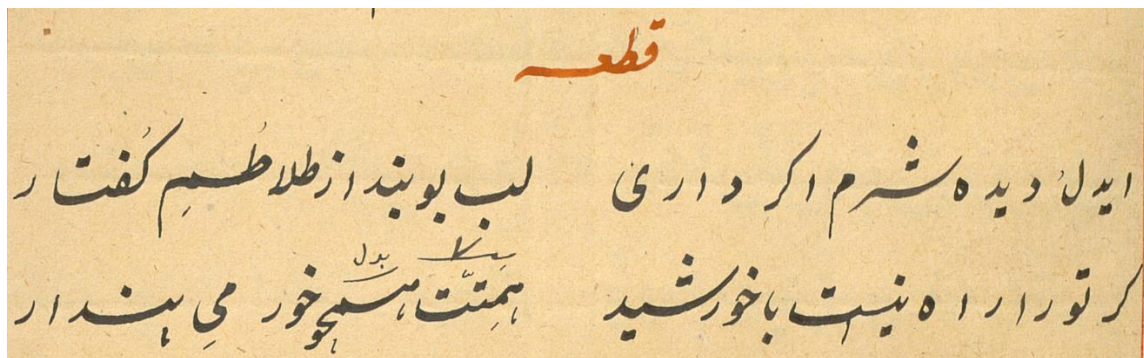 قطعه
ایدل دیده شرم اکر داری لب بوبند از طلاطم کُفتار
بدل
کر تو را راه نیست با خورشید همتّت همچو خور می پندار